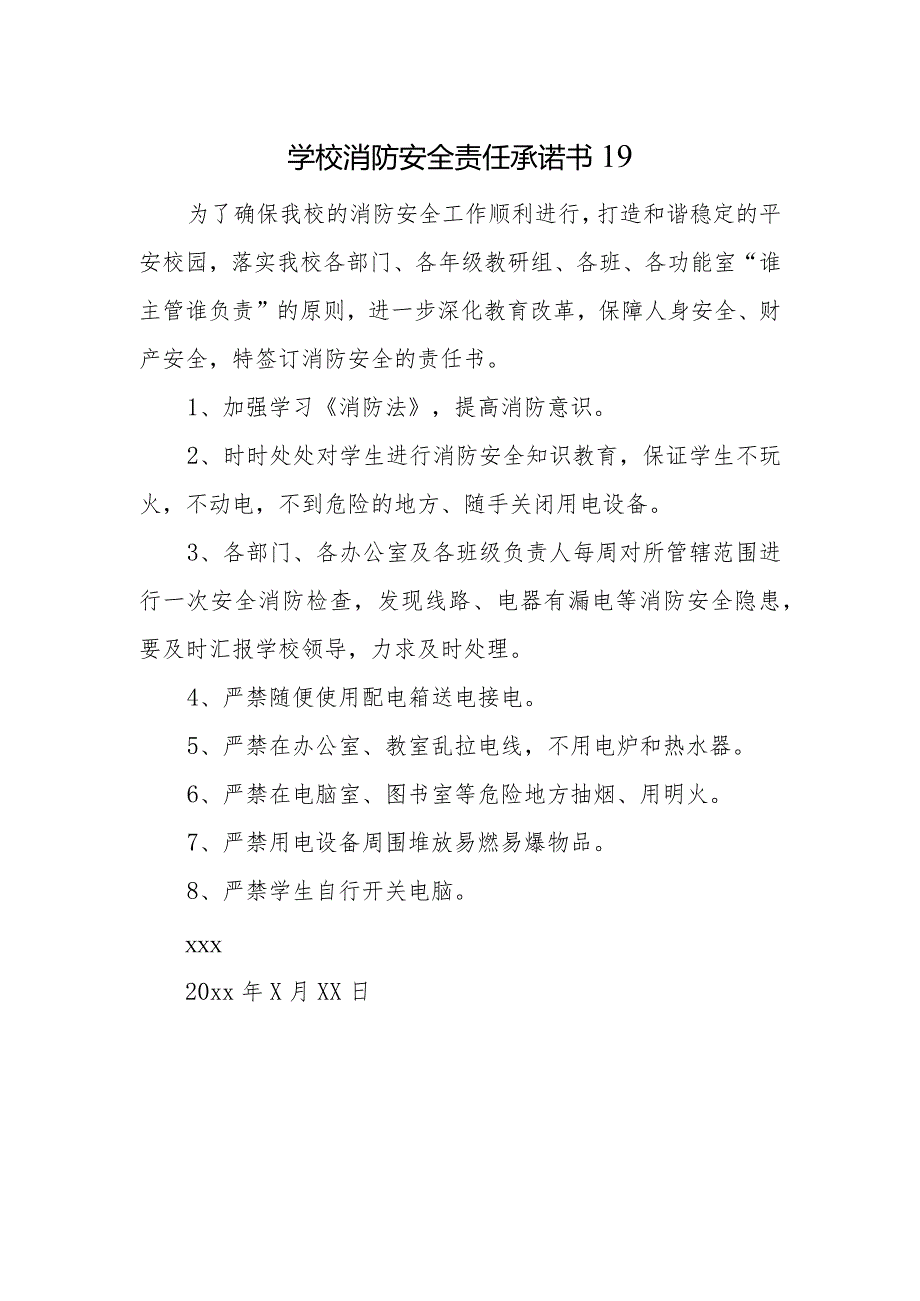 学校消防安全责任承诺书 19
为了确保我校的消防安全工作顺利进行，打造和谐稳定的平
安校园，落实我校各部门、各年级教研组、各班、各功能室“谁
主管谁负责”的原则，进一步深化教育改革，保障人身安全、财
产安全，特签订消防安全的责任书。
1、加强学习《消防法》，提高消防意识。
2、时时处处对学生进行消防安全知识教育，保证学生不玩
火，不动电，不到危险的地方、随手关闭用电设备。
3、各部门、各办公室及各班级负责人每周对所管辖范围进
行一次安全消防检查，发现线路、电器有漏电等消防安全隐患，
要及时汇报学校领导，力求及时处理。
4、严禁随便使用配电箱送电接电。
5、严禁在办公室、教室乱拉电线，不用电炉和热水器。
6、严禁在电脑室、图书室等危险地方抽烟、用明火。
7、严禁用电设备周围堆放易燃易爆物品。
8、严禁学生自行开关电脑。
xxx
20xx 年 X 月 XX 日